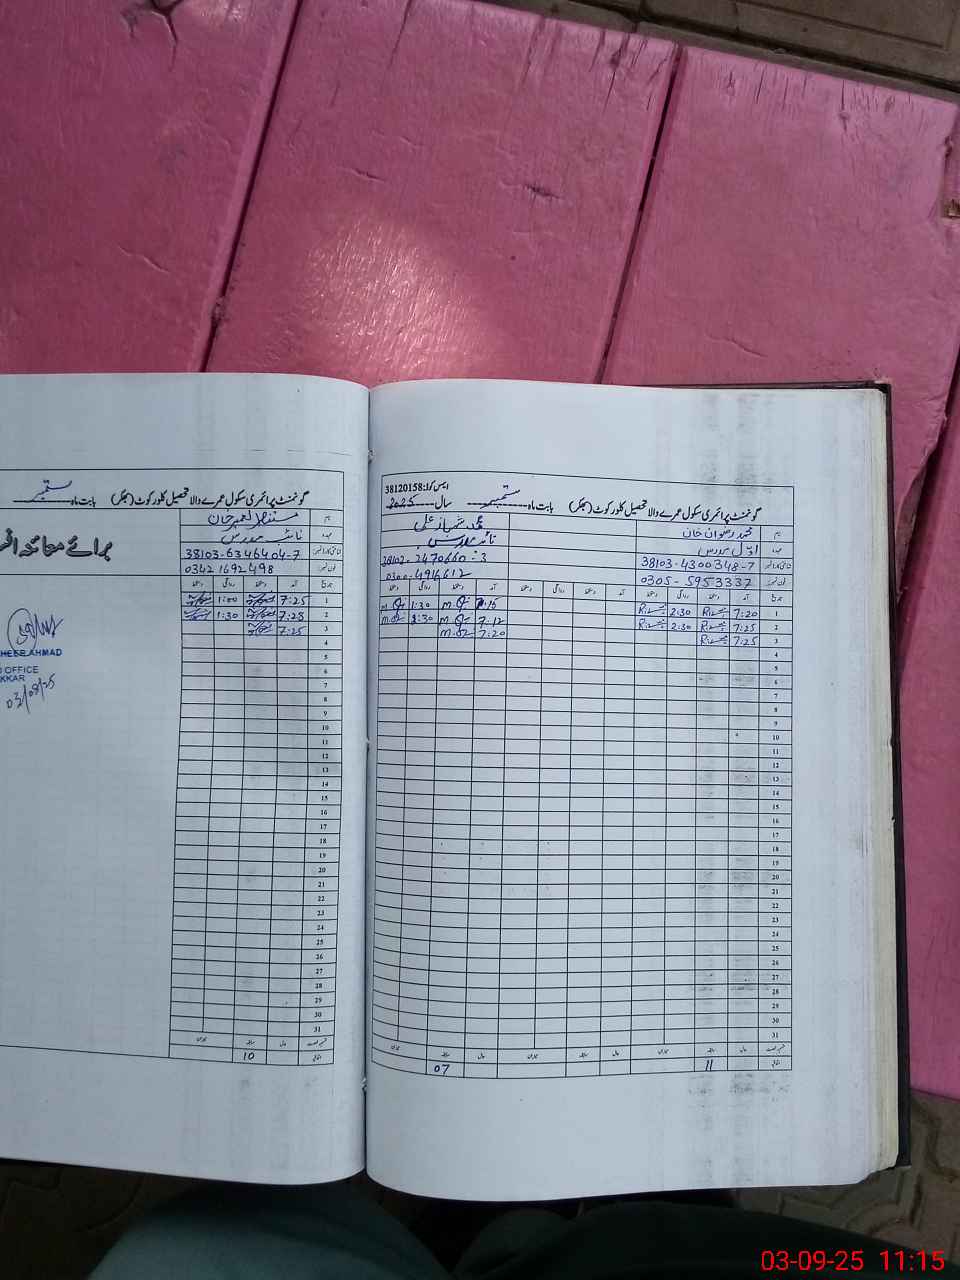 ایمس کوڈ:38120158
گورنمنٹ پرائمری سکول عمرے والا تحصیل کلورکوٹ (بھکر) بابت ماہ ستمبر سال 2025
نام محمد رضوان خان محمد شہباز علی
عہدہ اول مدرس نائب مدرس
شناختی کارڈ نمبر 38103-4300348-7 38102-2470660-3
فون نمبر 0305-5953337 0300-4916612
تاریخ آمد دستخط روانگی دستخط آمد دستخط روانگی دستخط آمد دستخط روانگی دستخط
1 7:20 2:30 7:15 1:30
2 7:25 2:30 7:12 2:30
3 7:25 7:20
4
5
6
7
8
9
10
11
12
13
14
15
16
17
18
19
20
21
22
23
24
25
26
27
28
29
30
31
حال سابقہ میزان حال سابقہ میزان حال سابقہ میزان
اتفاقیہ 11 07
گورنمنٹ پرائمری سکول عمرے والا تحصیل کلورکوٹ (بھکر) بابت ماہ ستمبر
نام
عہدہ نائب مدرس
شناختی کارڈ نمبر 38103-6346404-7
فون نمبر 0342 1692498
برائے معائنہ
تاریخ آمد دستخط روانگی دستخط
1 7:25 1:00
2 7:25 1:30
3 7:25
4
5
6
7
8
9
10
11
12
13
14
15
16
17
18
19
20
21
22
23
24
25
26
27
28
29
30
31
حال سابقہ میزان
اتفاقیہ 10
HEER AHMAD
OFFICE
KKAR
03/09/25
03-09-25 11:15